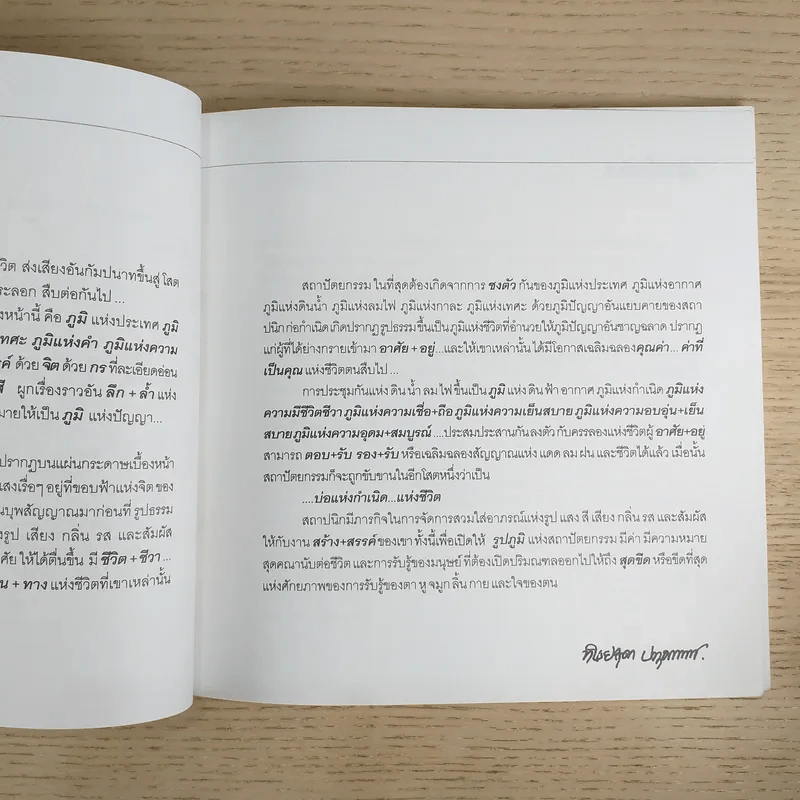 วิต ส่งเสียงอันกัมปนาทขึ้นสู่ โสต
ะลอก สืบต่อกันไป ...
งหน้านี้ คือ ภูมิ แห่งประเทศ ภูมิ
ทศะ ภูมิแห่งคำ ภูมิแห่งความ
รค์ ด้วย จิต ด้วย กร ที่ละเอียดอ่อน
สี ผูกเรื่องราวอัน ลึก + ล้ำ แห่ง
มายให้เป็น ภูมิ แห่งปัญญา...
ปรากฏบนแผ่นกระดาษเบื้องหน้า
แสงเรื่อๆ อยู่ที่ขอบฟ้าแห่งจิต ของ
นบุพสัญญาณมาก่อนที่ รูปธรรม
งรูป เสียง กลิ่น รส และสัมผัส
ศัย ให้ได้ตื่นขึ้น มี ชีวิต + ชีวา ...
น + ทาง แห่งชีวิตที่เขาเหล่านั้น
สถาปัตยกรรม ในที่สุดต้องเกิดจากการ ชงตัว กันของภูมิแห่งประเทศ ภูมิแห่งอากาศ
ภูมิแห่งดินน้ำ ภูมิแห่งลมไฟ ภูมิแห่งกาละ ภูมิแห่งเทศะ ด้วยภูมิปัญญาอันแยบคายของสถา
ปนิก ก่อกำเนิดเกิดปรากฏรูปธรรมขึ้นเป็นภูมิแห่งชีวิตที่อำนวยให้ภูมิปัญญาอันชาญฉลาด ปรากฏ
แก่ผู้ที่ได้ย่างกรายเข้ามา อาศัย + อยู่ ...และให้เขาเหล่านั้น ได้มีโอกาสเฉลิมฉลองคุณค่า... ค่าที่
เป็นคุณ แห่งชีวิตตนสืบไป ...
การประชุมกันแห่ง ดิน น้ำ ลม ไฟ ขึ้นเป็น ภูมิ แห่ง ดิน ฟ้า อากาศ ภูมิแห่งกำเนิด ภูมิแห่ง
ความมีชีวิตชีวา ภูมิแห่งความเชื่อ+ถือ ภูมิแห่งความเย็นสบาย ภูมิแห่งความอบอุ่น+เย็น
สบายภูมิแห่งความอุดม+สมบูรณ์ ....ประสมประสานกันลงตัว กับครรลองแห่งชีวิตผู้ อาศัย+อยู่
สามารถ ตอบ+รับ รอง+รับ หรือเฉลิมฉลองสัญญาณแห่ง แดด ลม ฝน และชีวิตได้แล้ว เมื่อนั้น
สถาปัตยกรรมก็จะถูกขับขานในอีกโสตหนึ่งว่าเป็น
....บ่อแห่งกำเนิด...แห่งชีวิต
สถาปนิกมีภารกิจในการจัดการสวมใส่อาภรณ์แห่งรูป แสง สี เสียง กลิ่น รส และสัมผัส
ให้กับงาน สร้าง+สรรค์ ของเขา ทั้งนี้เพื่อเปิดให้ รูปภูมิ แห่งสถาปัตยกรรม มีค่า มีความหมาย
สุดคณานับต่อชีวิต และการรับรู้ของมนุษย์ ที่ต้องเปิดปริมณฑลออกไปให้ถึง สุดขีด หรือขีดที่สุด
แห่งศักยภาพของการรับรู้ของตา หู จมูก ลิ้น กาย และใจของตน